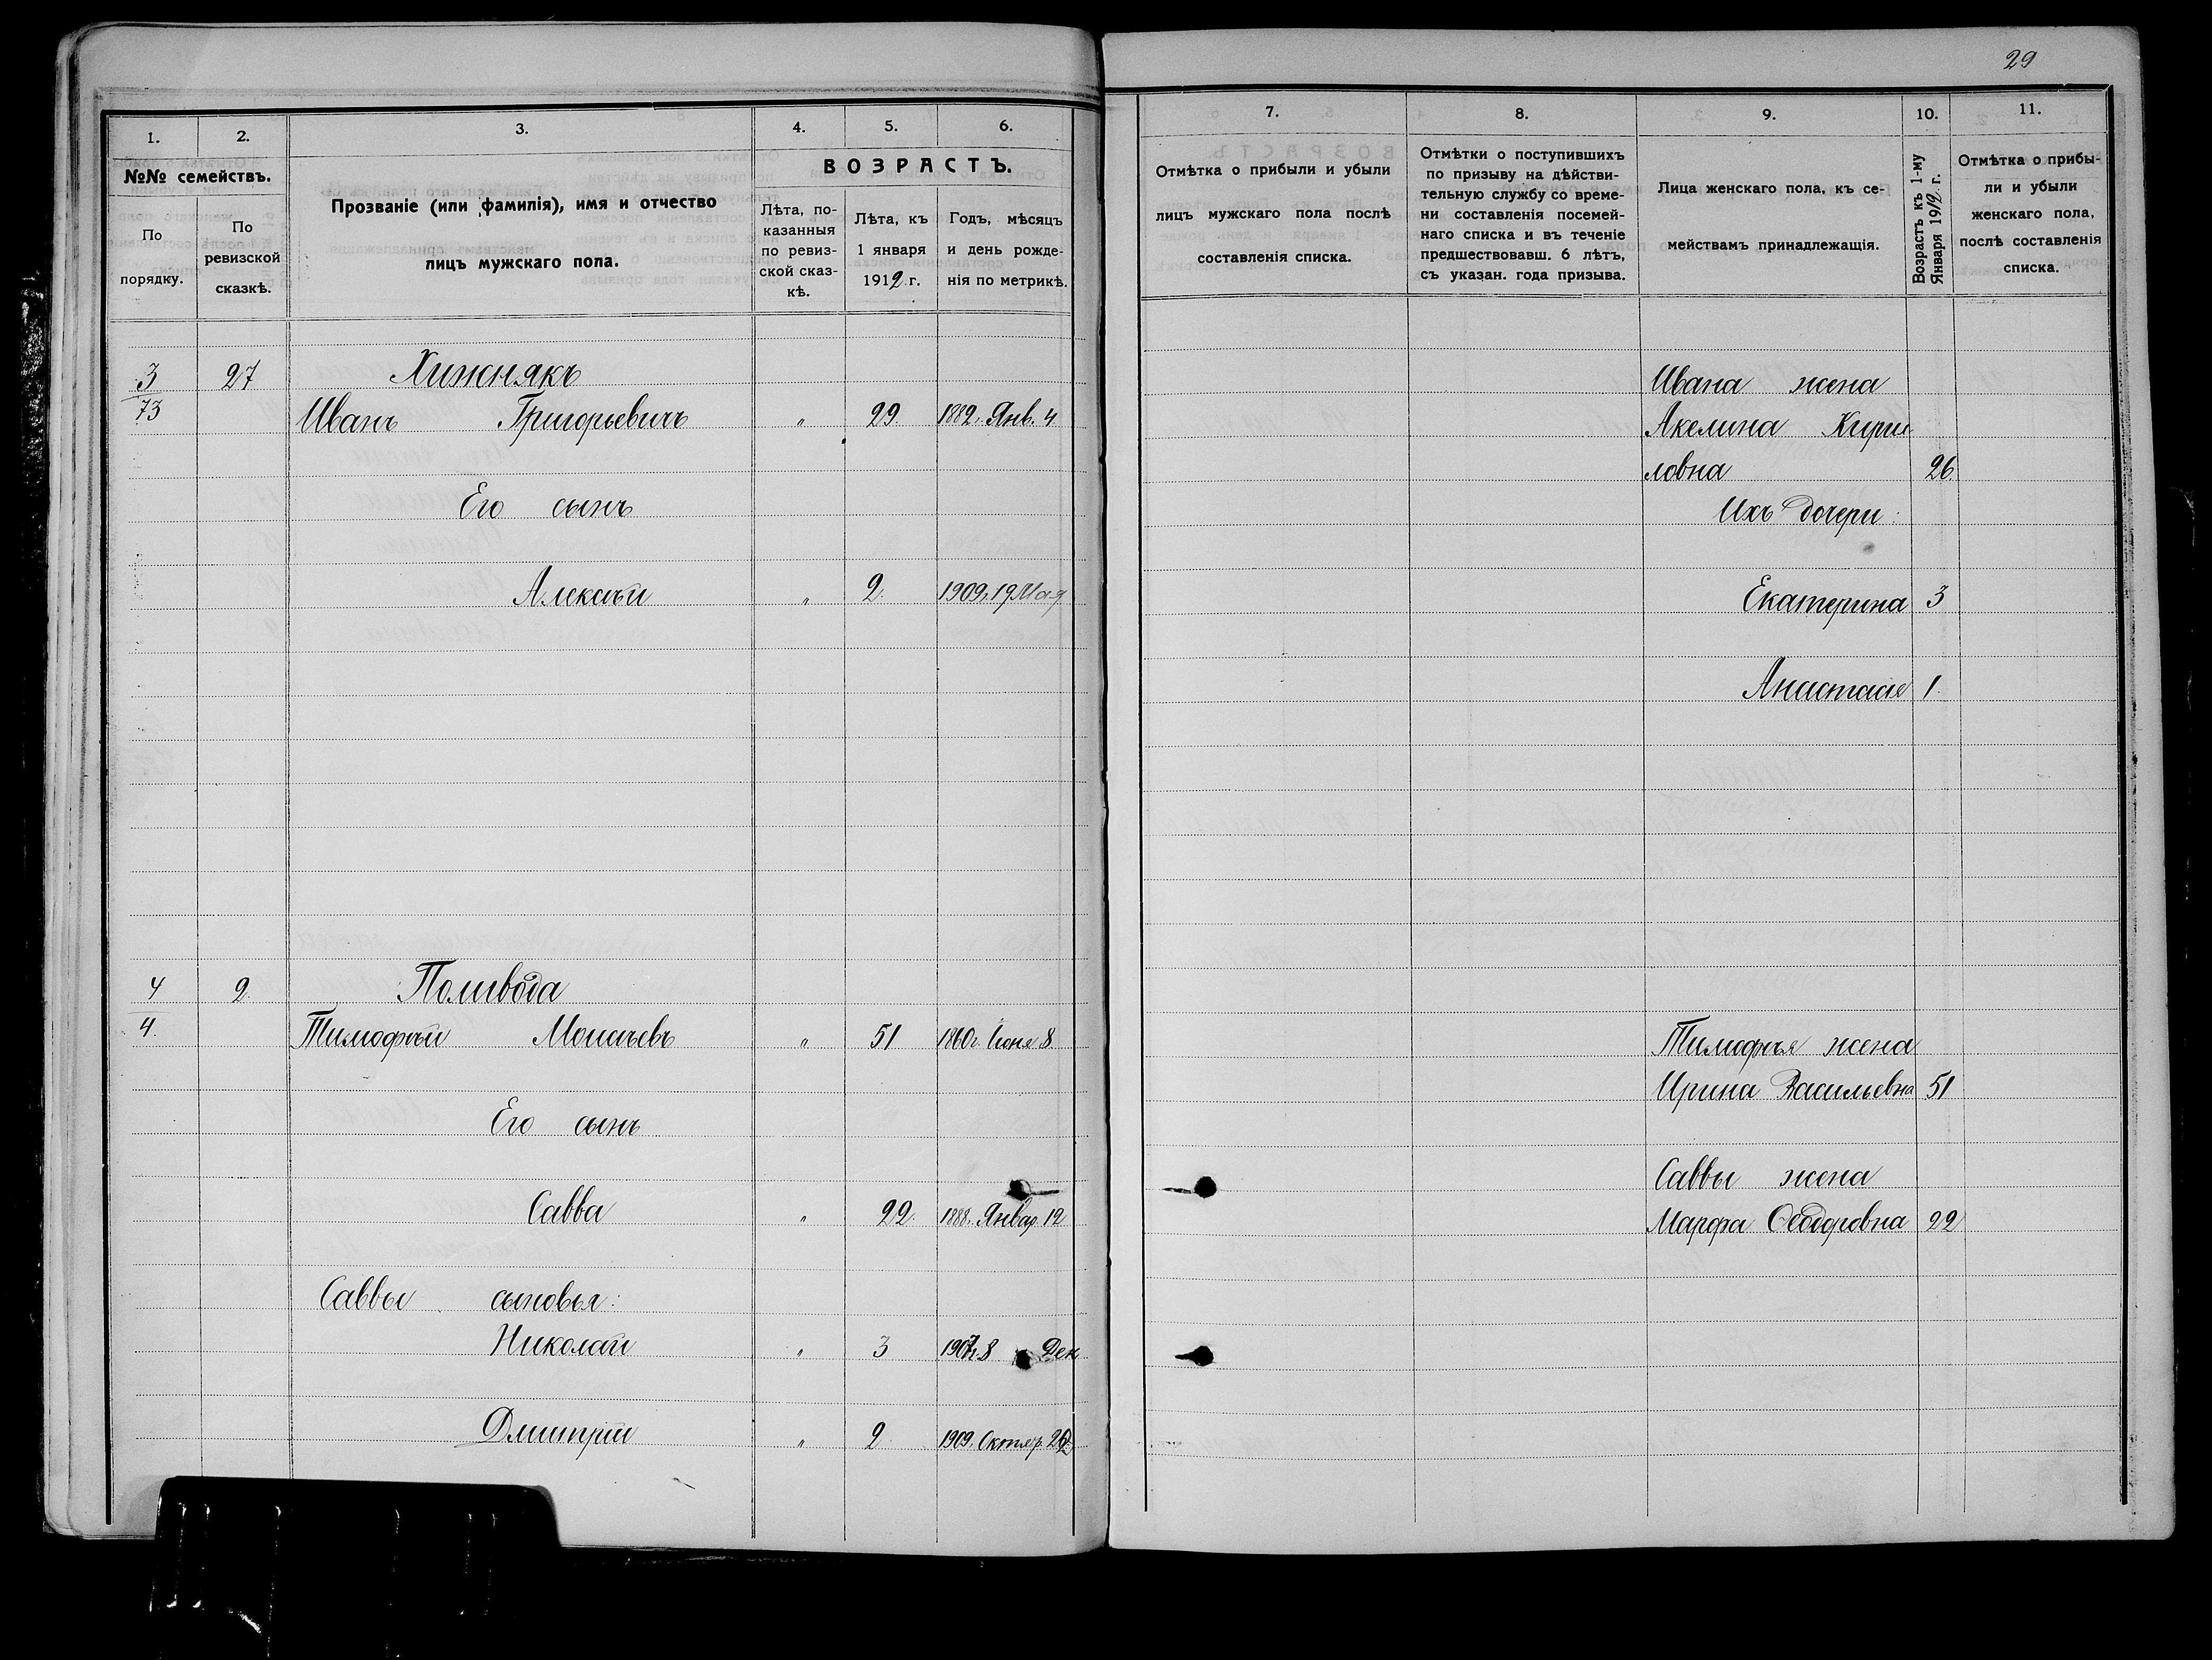 29
1.
2.
3.
4.
5.
6.
№№ семействъ.
По порядку.
По ревизской сказкѣ.
Прозваніе (или фамилія), имя и отчество
лицъ мужскаго пола.
ВОЗРАСТЪ.
Лѣта, по-
казанныя
по ревиз-
ской сказ-
кѣ.
Лѣта, къ
1 января
1912 г.
Годъ, мѣсяцъ
и день рожде-
нія по метрикѣ.
7.
8.
9.
10.
11.
Отмѣтка о прибыли и убыли
лицъ мужского пола послѣ
составленія списка.
Отмѣтки о поступившихъ
по призыву на дѣйстви-
тельную службу со време-
ни составленія посемей-
наго списка и въ теченіе
предшествовавш. 6 лѣтъ,
съ указан. года призыва.
Лица женскаго пола, къ се-
мействамъ принадлежащія.
Возрастъ къ 1-му
Января 1912 г.
Отмѣтка о прибы-
ли и убыли
женскаго пола,
послѣ составленія
списка.
3 27 Хижнякъ
73 Иванъ Григорьевичъ " 29. 1882 г. Янв. 4
Его сынъ
Алексѣй " 2. 1909 г. 19 Мая
4 2. Поливода
4. Тимофѣй Моисѣевъ " 51 1860 г. Іюня 8
Его сынъ
Савва " 22. 1888 г. Январ. 12
Саввы сыновья:
Николай " 3 1907 г. 8 Дек
Дмитрій " 2 1909. Октяр.
Ивана жена
Акелина Кири
ловна 26.
Ихъ дочери:
Екатерина 3
Анастасія 1.
Тимофѣя жена
Ирина Васильевна 51
Саввы жена
Марфа Ѳеодоровна 22